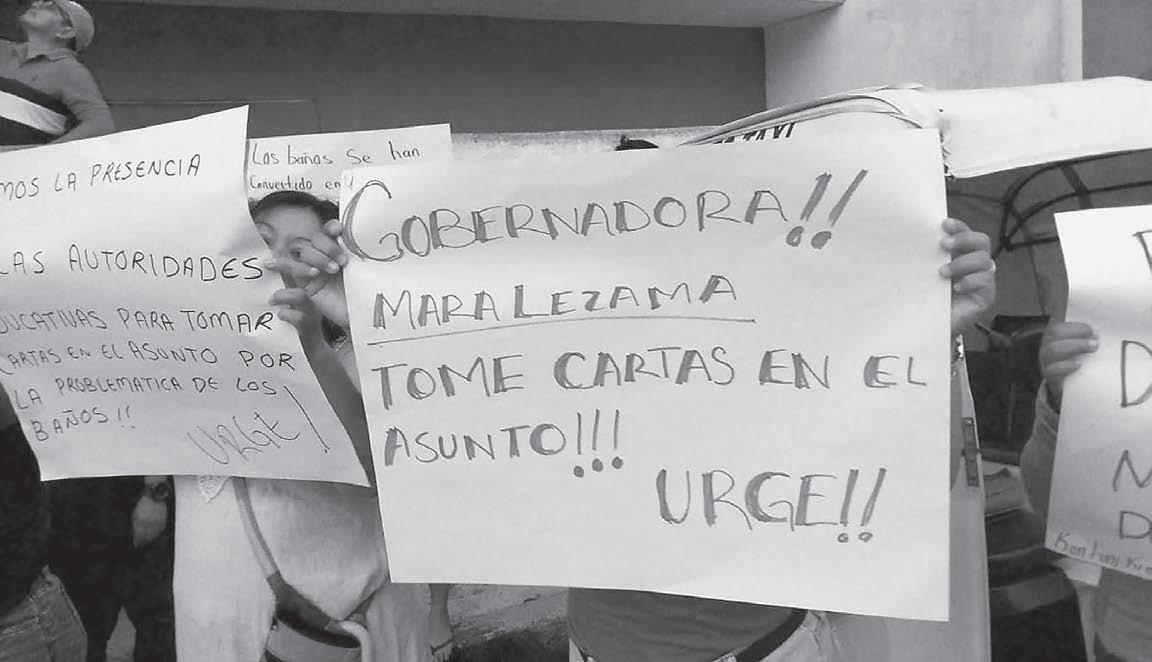 MOS LA PRESENCIA
LAS AUTORIDADES
DUCATIVAS PARA TOMAR
CARTAS EN EL ASUNTO POR
LA PROBLEMATICA DE LOS
BAÑOS!!
URGE!
Los baños se han
Convertido en
GOBERNADORA!!
MARA LEZAMA
TOME CARTAS EN EL
ASUNTO!!!
URGE!!
D
M
D